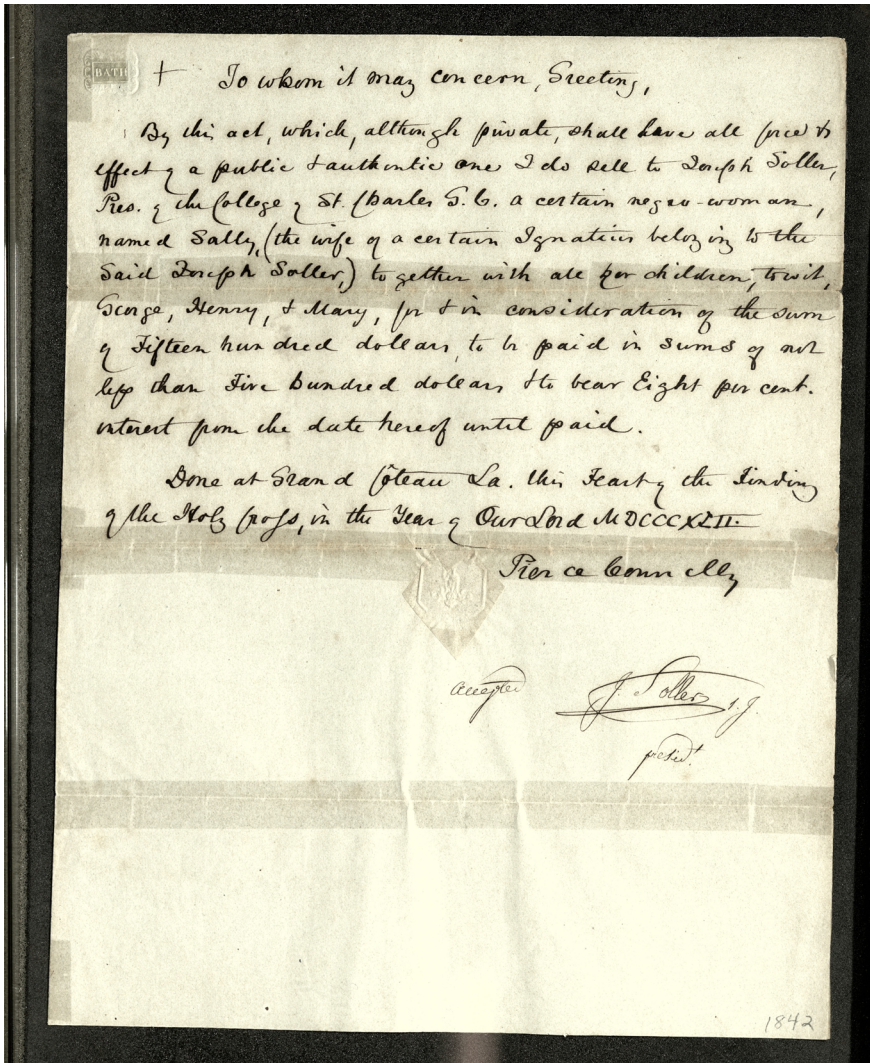 BATH
+ To whom it may concern, Greeting,
By this act, which, although private, shall have all force &
effect of a public & authentic one I do sell to Joseph Soller,
Pres. of the College of St. Charles G. C. a certain negro-woman,
named Sally, (the wife of a certain Ignatius belonging to the
said Joseph Soller,) together with all her children, to wit,
George, Henry, & Mary, for & in consideration of the sum
of Fifteen hundred dollars, to be paid in sums of not
less than Five hundred dollars & to bear Eight per cent.
interest from the date hereof until paid.
Done at Grand Côteau La. this Feast of the Finding
of the Holy Cross, in the Year of Our Lord MDCCCXLII.
Pierce Connelly
accepted J. Soller s.j.
presidt.
1842